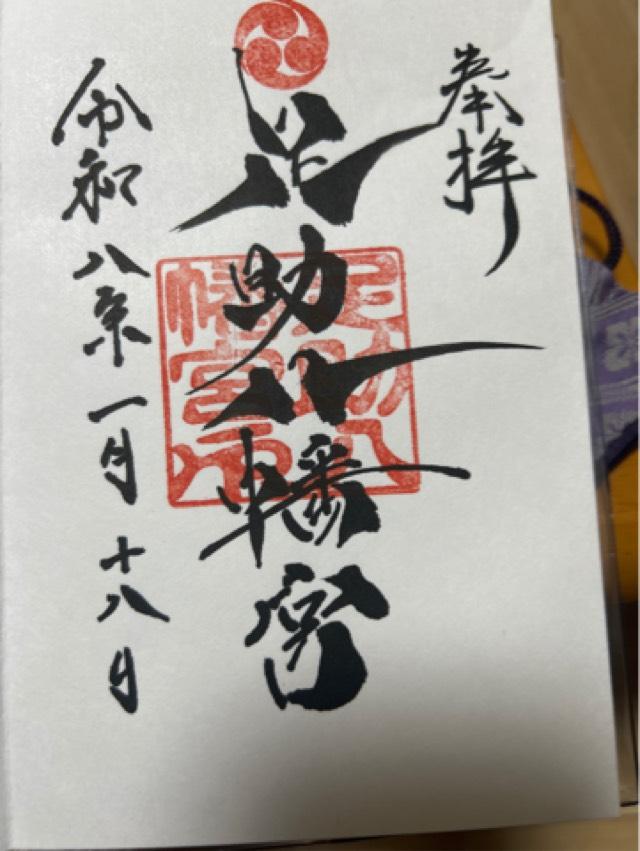 奉拝
足助八幡宮
足助八幡宮印
令和八年一月十八日